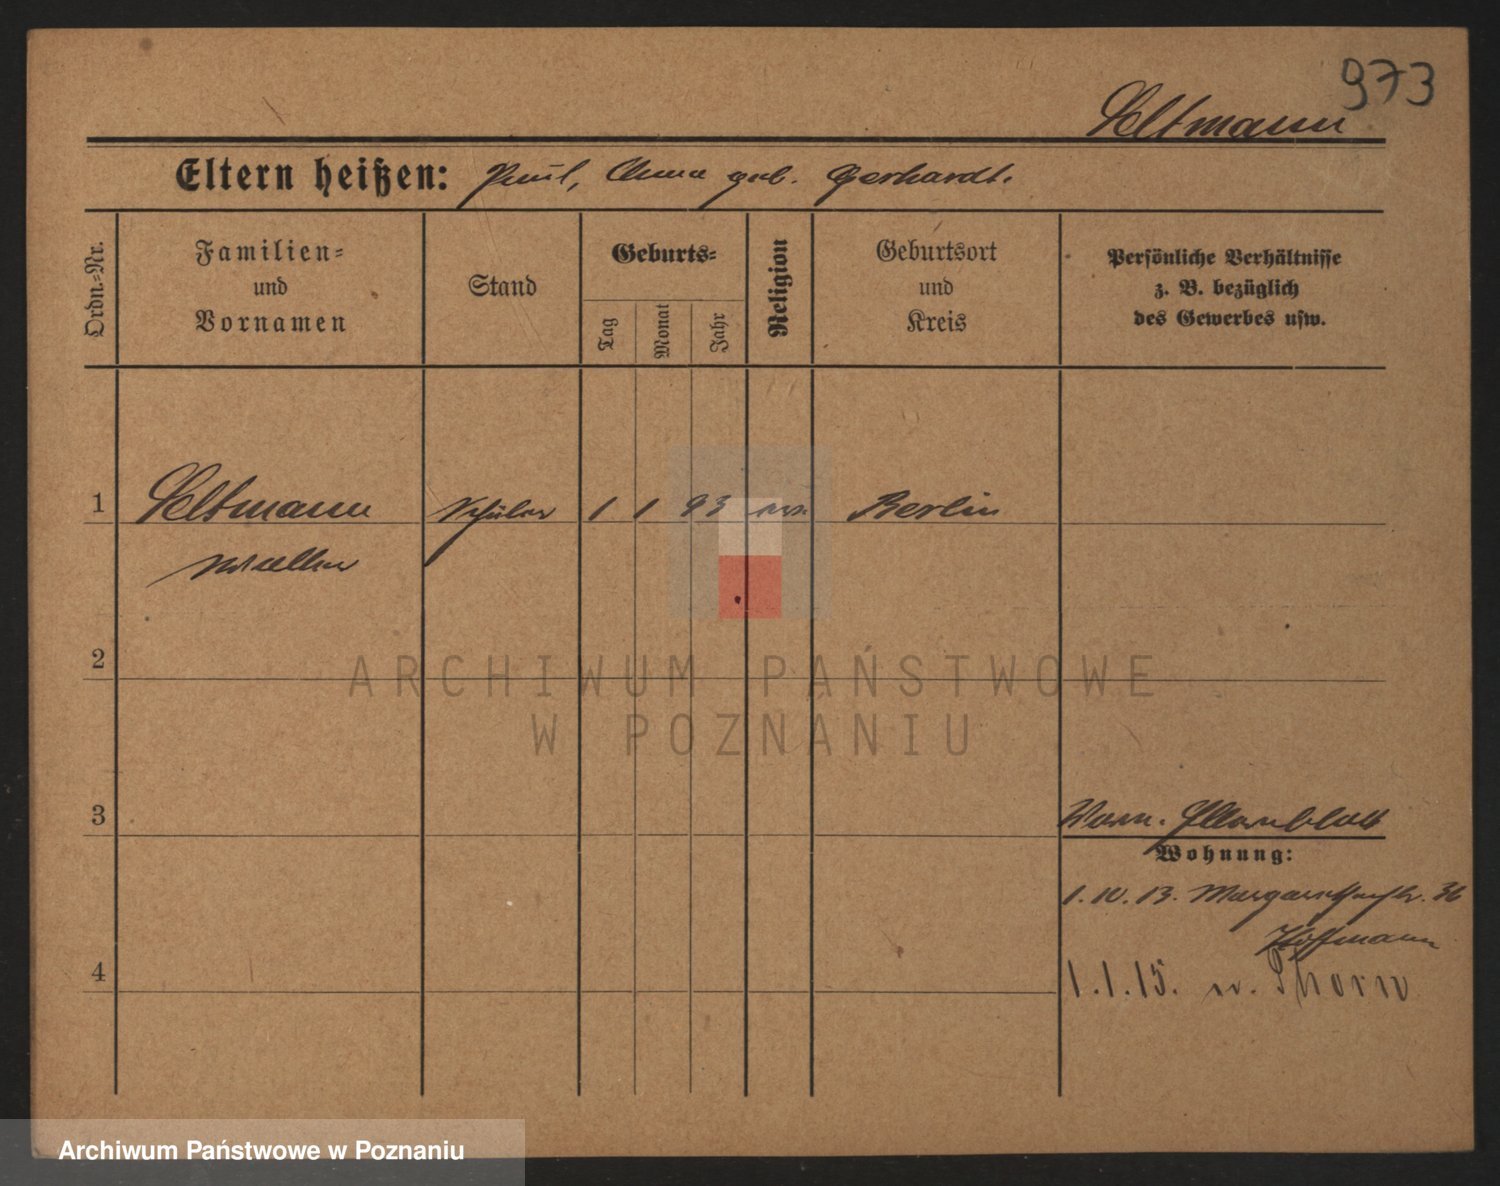 973
Seltmann
Eltern heißen: Paul, Anna geb. Gerhardt.
Ordn.-Nr.
Familien-
und
Vornamen
Stand
Geburts-
Tag
Monat
Jahr
Religion
Geburtsort
und
Kreis
Persönliche Verhältnisse
z. B. bezüglich
des Gewerbes usw.
1 Seltmann Schüler 1 1 93 ev. Berlin
Walther
2
3
4
Wohnung:
1. 10. 13. 36
Hoffmann
1.1.15. n. Thorn
ARCHIWUM PAŃSTWOWE
W POZNANIU
Archiwum Państwowe w Poznaniu